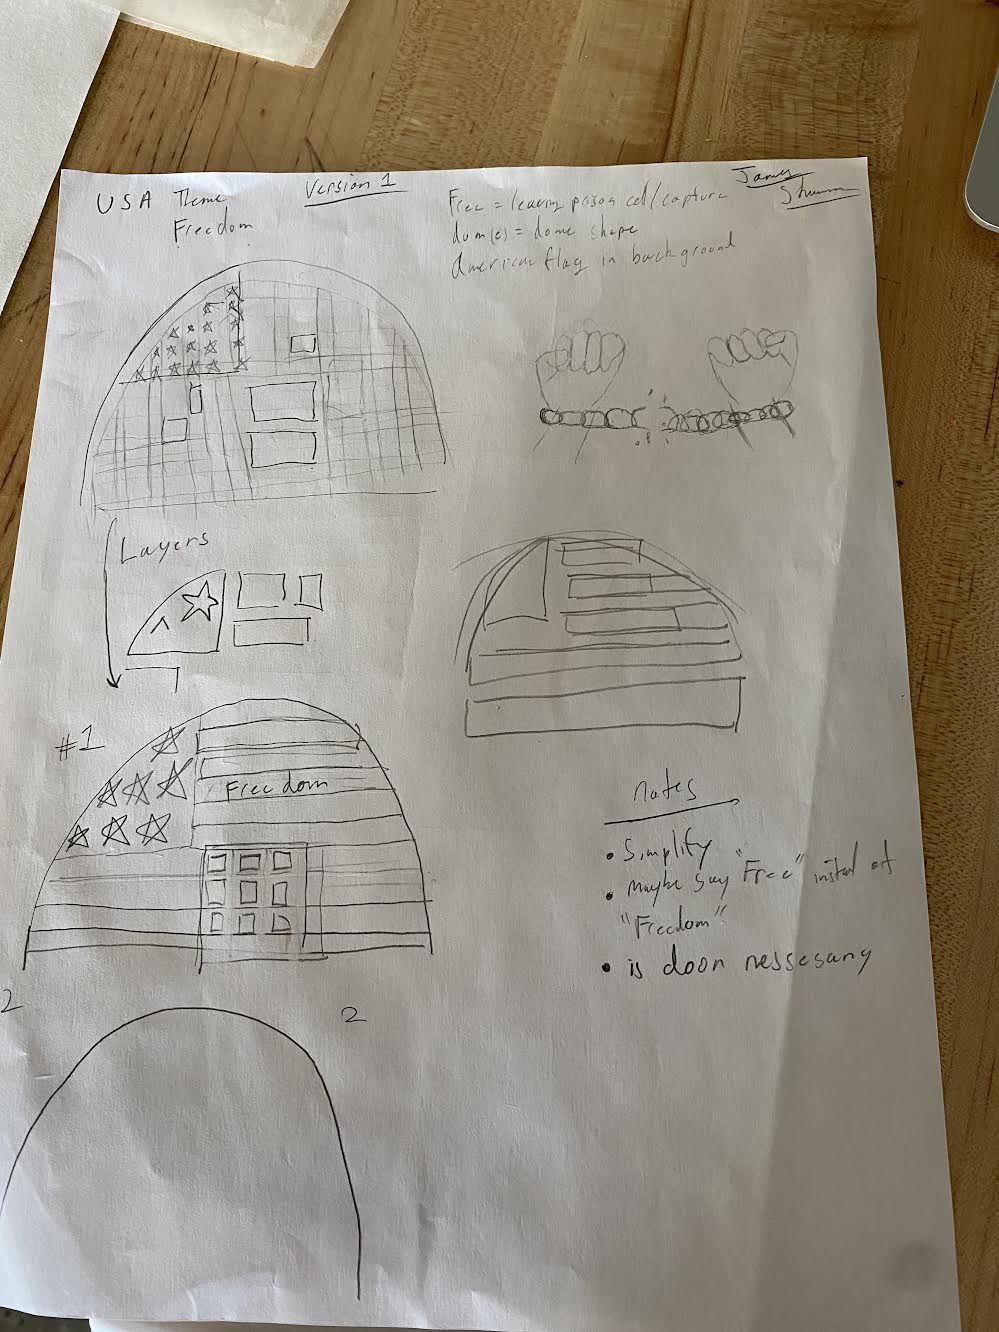 USA Theme
Freedom
Version 1
James
Free = leaving prison cell/capture
dom(e) = dome shape
American flag in background
Layers
#1
Freedom
notes
• Simplify
• Maybe say "Free" instead of
"Freedom"
• is door nessesary
2
2